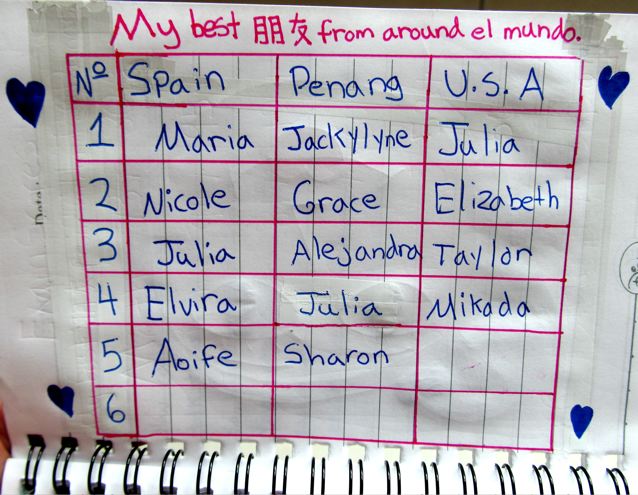 My best 朋友 from around el mundo.
Nº Spain Penang U.S.A
1 Maria Jackylyne Julia
2 Nicole Grace Elizabeth
3 Julia Alejandra Taylor
4 Elvira Julia Mikada
5 Aoife Sharon
6